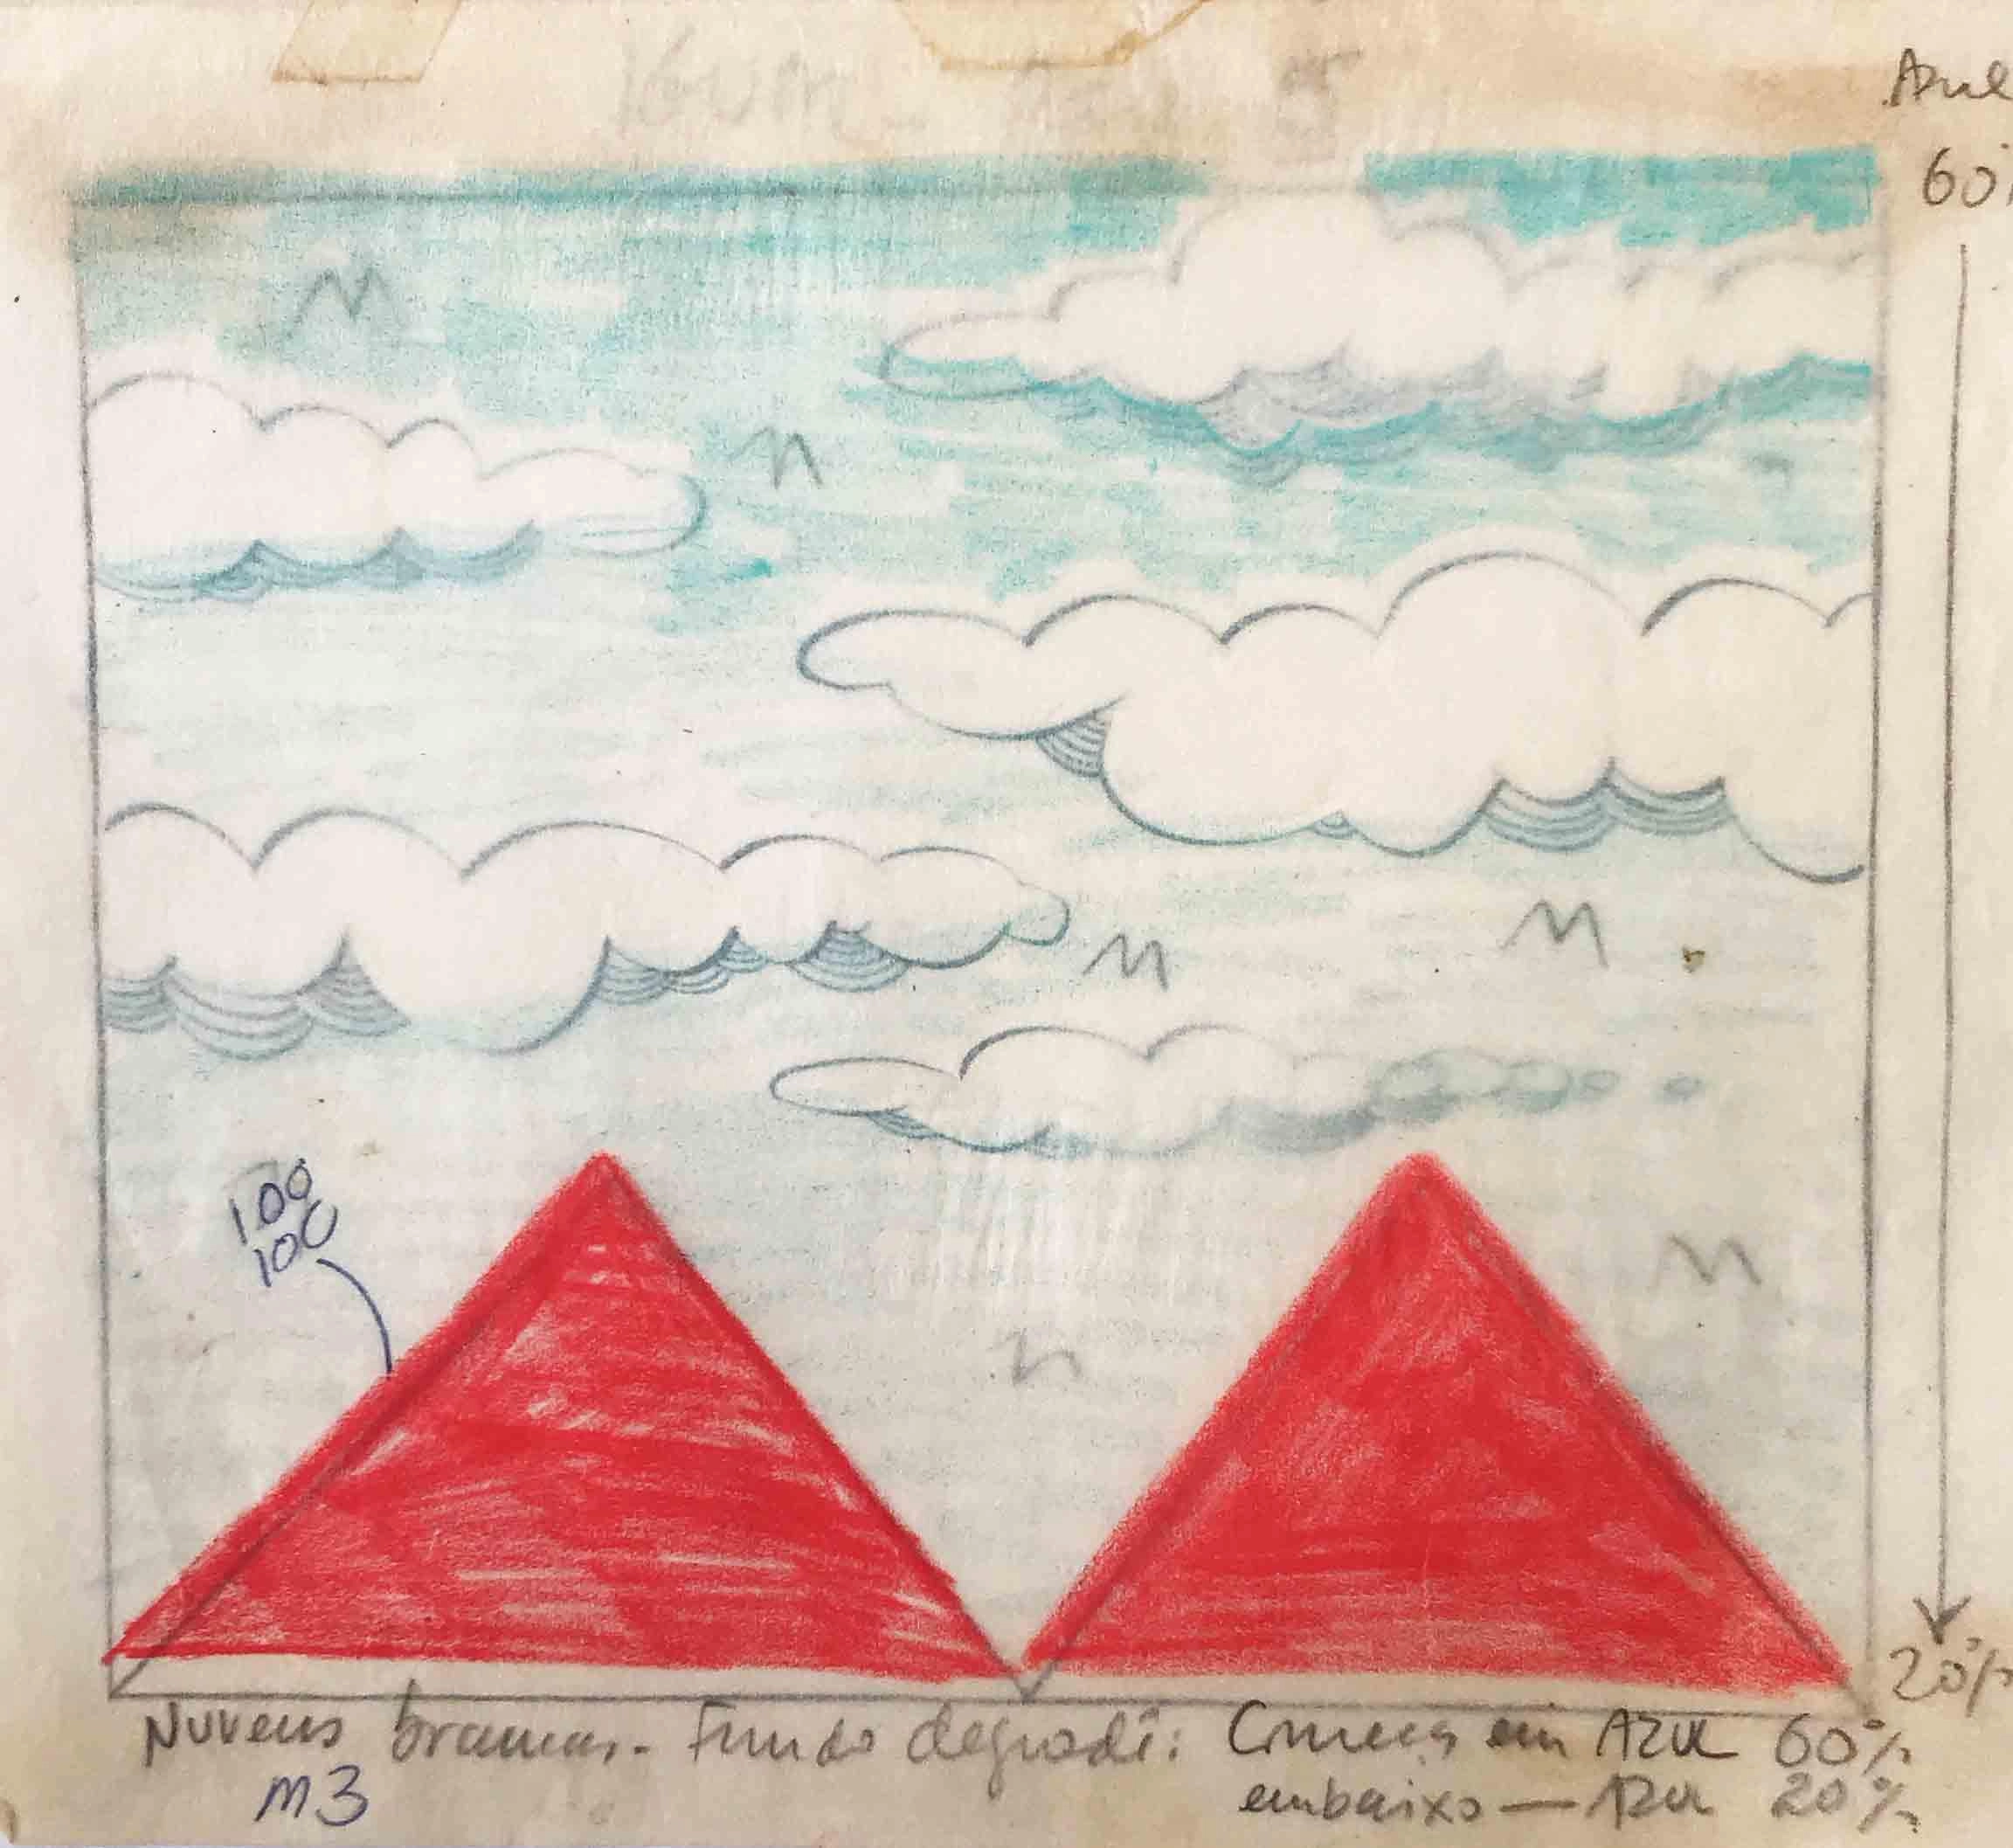 Azul
60%
100
100
20%
Nuvens brancas. Fundo degradê: Começa em AZUL 60%
embaixo — AZUL 20%
M3